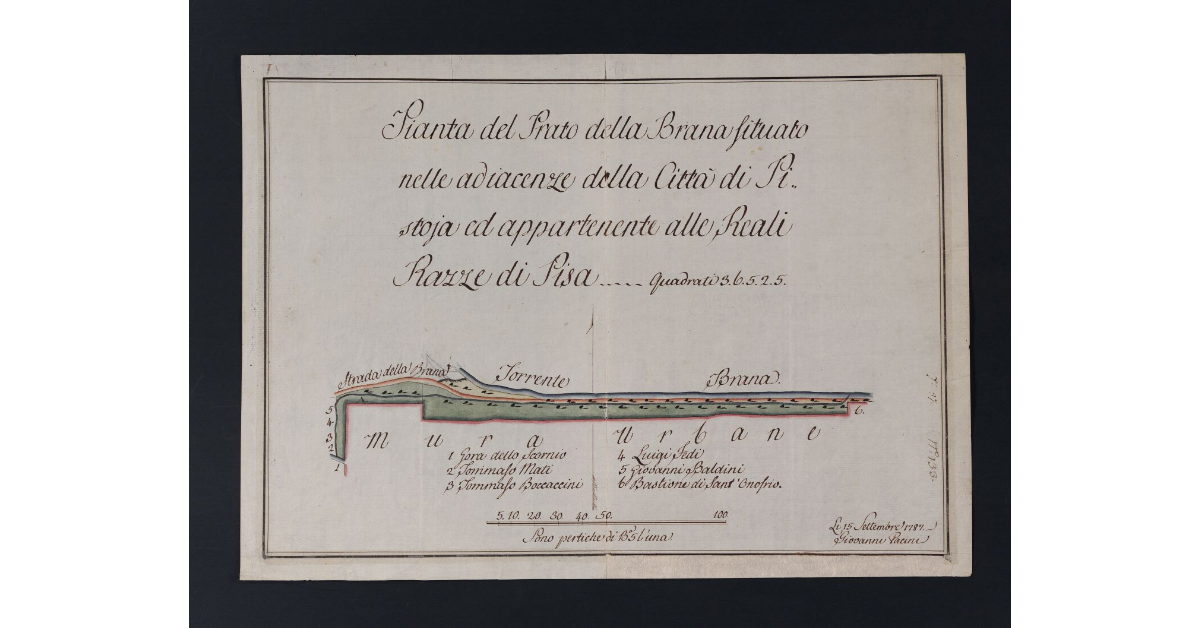 Pianta del Prato della Brana situato
nelle adiacenze della Città di Pi..
stoja ed appartenente alle Reali
Razze di Pisa ..... Quadrati 3.6.5.2.5.
Strada della Brana
Torrente Brana.
5
4
3
2
1
6.
Mura Urbane
1 Gora dello Scornio
2 Tommaso Mati
3 Tommaso Boccaccini
4 Luigi Fedi
5 Giovanni Baldini
6 Bastione di Sant'Onofrio.
5. 10. 20. 30. 40. 50. 100.
Sono pertiche di B.a 5 l'una
Li 15 Settembre 1787.
Giovanni Pacini